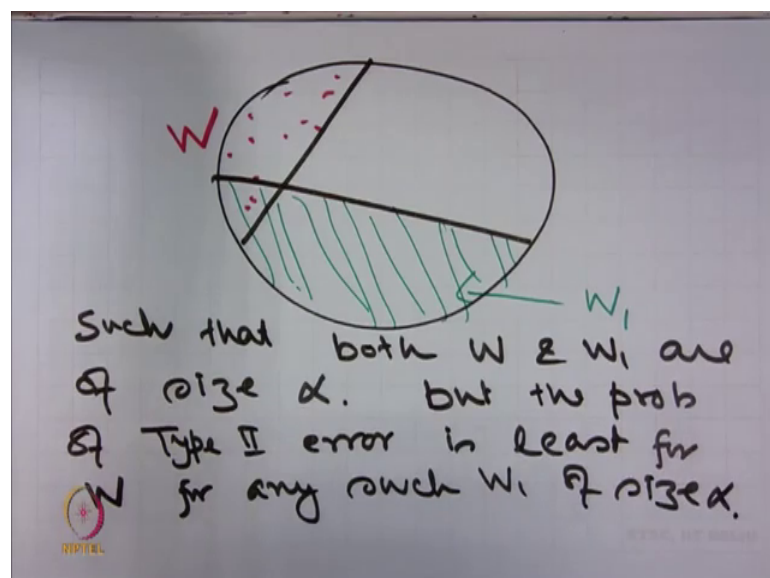 W
W₁
Such that both W & W₁ are
of size α. but the prob
of Type II error is least for
W for any such W₁ of size α.
NPTEL